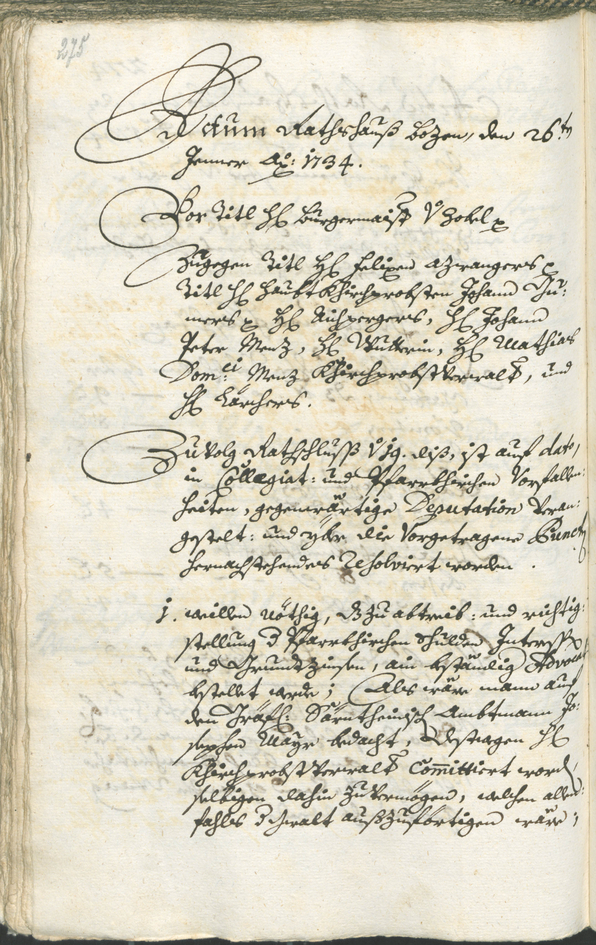 275
Actum Rathshauß Bozen, den 26.ten
Jenner Ao: 1734.
Vor Titl H: Burgermaister v Zobel p
Zugegen Titl H: Felixen Azwangers p
Titl H: Haubt Khirchprobsten Johann Tu:
mers p H: Aichpergers, H: Johann
Peter Menz, H: H: Mathias
Dom:ci Menz Khirchprobst Verwalt, und
H: Lärchers.
Zu Volg Rathschluß v 19. diß, ist auf dato,
in Collegiat: und Pfarrkhirchen Vorfallen:
heiten, gegenwärtige Deputation Veran:
gestelt: und yber die Vorgetragene Puncta
hernachstehendes Resolviert worden.
1. weillen nöthig, dz zu abtreib: und richtig:
stellung d Pfarrkhirchen Schulden Interesse
und Grundtzinsen, ain beständig Advocat
bestellet werde; Als wäre mann auf
den Gräfl: Särntheinisch Ambtmann Jo:
sephen Mayr bedacht, destwegen H:
Khirchprobst Verwalt Com̄ittiert word,
selbigen dahin zuvermögen, welchen allen:
fahls d Gwalt außzuförtigen wäre;